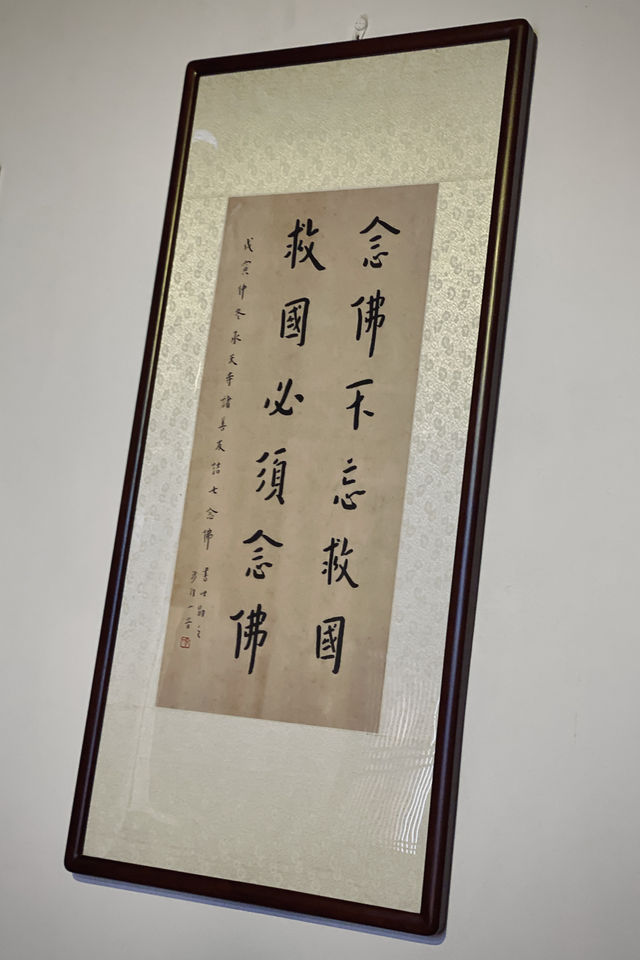 念佛不忘救國
救國必須念佛
戊寅仲冬承天寺諸善友結七念佛
書此勗之
一音